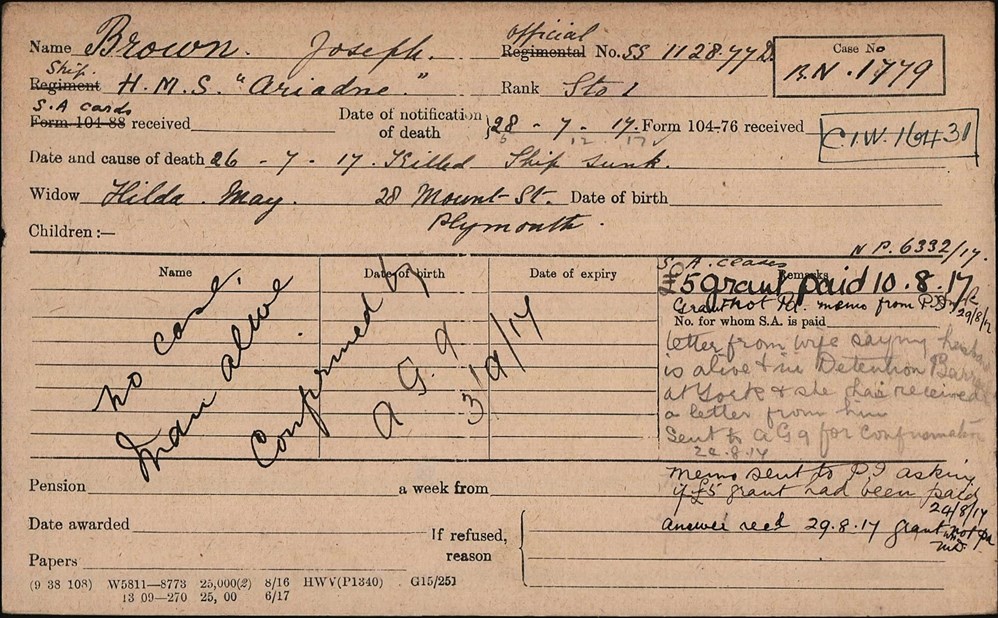 official
Name Brown. Joseph. Regimental No. SS 112877 D Case No
R.N. 1779
Ship.
Regiment H.M.S. "Ariadne." Rank Sto 1
S.A cards
Form 104-88 received Date of notification of death } 28 - 7 - 17. Form 104-76 received
C.I.W. 116431
Date and cause of death 26 - 7 - 17. Killed Ship sunk.
Widow Hilda May. 28 Mount St. Date of birth
Plymouth.
Children :—
N P. 6332/17.
Name Date of birth Date of expiry Remarks
S. A. ceases
£5 grant paid 10.8.17
Grant not Pd. memo from P.I
29/8/17
No. for whom S.A. is paid
letter from wife saying husband
is alive & in Detention Barracks
at York & she has received
a letter from him
Sent to AG9 for confirmation
22.8.17
no case,
man alive
Confirmed by
A G. 9
3/9/17
memo sent to P.I asking
if £5 grant had been paid
24/8/17
Pension a week from
answer recd 29.8.17 grant not pd
Date awarded If refused,
reason
Papers
(9 38 108) W5811—8773 25,000(2) 8/16 HWV(P1340) G15/251
13 09—270 25, 00 6/17